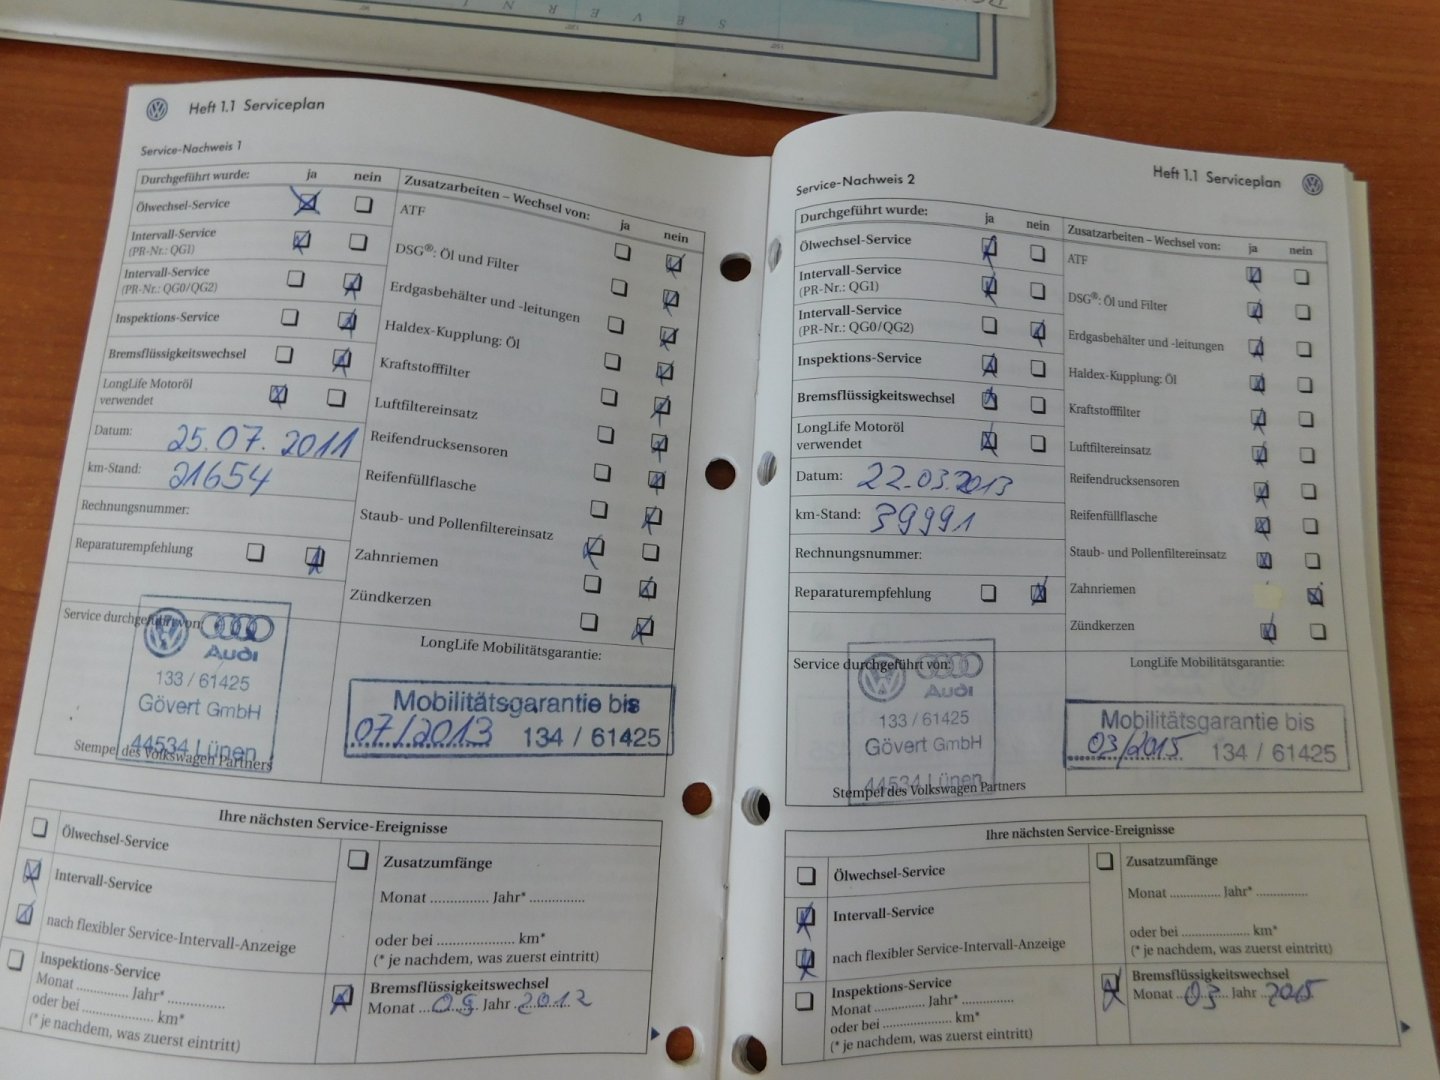 S E V E R N I
Heft 1.1 Serviceplan
Service-Nachweis 1
Durchgeführt wurde: ja nein
Ölwechsel-Service
Intervall-Service
(PR-Nr.: QG1)
Intervall-Service
(PR-Nr.: QG0/QG2)
Inspektions-Service
Bremsflüssigkeitswechsel
LongLife Motoröl
verwendet
Datum: 25.07.2011
km-Stand: 21654
Rechnungsnummer:
Reparaturempfehlung
Zusatzarbeiten – Wechsel von: ja nein
ATF
DSG®: Öl und Filter
Erdgasbehälter und -leitungen
Haldex-Kupplung: Öl
Kraftstofffilter
Luftfiltereinsatz
Reifendrucksensoren
Reifenfüllflasche
Staub- und Pollenfiltereinsatz
Zahnriemen
Zündkerzen
Service durchgeführt von:
Audi
133 / 61425
Gövert GmbH
44534 Lünen
Stempel des Volkswagen Partners
LongLife Mobilitätsgarantie:
Mobilitätsgarantie bis
07/2013 134 / 61425
Ihre nächsten Service-Ereignisse
Ölwechsel-Service
Intervall-Service
nach flexibler Service-Intervall-Anzeige
Inspektions-Service
Monat ............ Jahr* .............
oder bei .................... km*
(* je nachdem, was zuerst eintritt)
Zusatzumfänge
Monat ............. Jahr* .............
oder bei .................. km*
(* je nachdem, was zuerst eintritt)
Bremsflüssigkeitswechsel
Monat Jahr 2012
Heft 1.1 Serviceplan
Service-Nachweis 2
Durchgeführt wurde: ja nein
Ölwechsel-Service
Intervall-Service
(PR-Nr.: QG1)
Intervall-Service
(PR-Nr.: QG0/QG2)
Inspektions-Service
Bremsflüssigkeitswechsel
LongLife Motoröl
verwendet
Datum: 22.03.2013
km-Stand: 39991
Rechnungsnummer:
Reparaturempfehlung
Zusatzarbeiten – Wechsel von: ja nein
ATF
DSG®: Öl und Filter
Erdgasbehälter und -leitungen
Haldex-Kupplung: Öl
Kraftstofffilter
Luftfiltereinsatz
Reifendrucksensoren
Reifenfüllflasche
Staub- und Pollenfiltereinsatz
Zahnriemen
Zündkerzen
Service durchgeführt von:
Audi
133 / 61425
Gövert GmbH
44534 Lünen
Stempel des Volkswagen Partners
LongLife Mobilitätsgarantie:
Mobilitätsgarantie bis
03/2015 134 / 61425
Ihre nächsten Service-Ereignisse
Ölwechsel-Service
Intervall-Service
nach flexibler Service-Intervall-Anzeige
Inspektions-Service
Monat ............ Jahr* .............
oder bei .................... km*
(* je nachdem, was zuerst eintritt)
Zusatzumfänge
Monat ............. Jahr* .............
oder bei .................. km*
(* je nachdem, was zuerst eintritt)
Bremsflüssigkeitswechsel
Monat 03 Jahr 2015